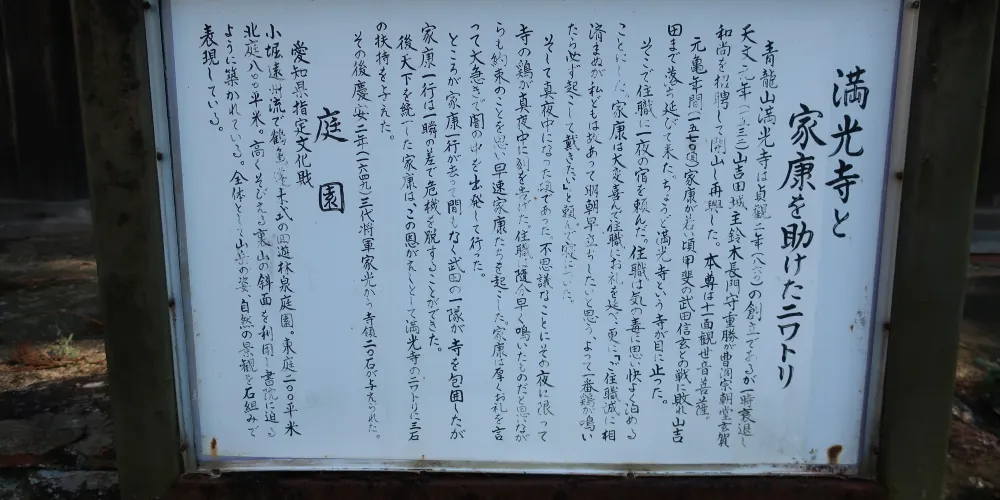 満光寺と
家康を助けたニワトリ
青龍山満光寺は貞観二年(八六〇)の創立であるが一時衰退し
天文元年(一五三二)山吉田城主鈴木長門守重勝が曹洞宗朝堂玄賀
和尚を招聘して開山し再興した。本尊は十一面観世音菩薩。
元亀年間(一五七〇頃)家康が若い頃甲斐の武田信玄との戦に敗れ山吉
田まで落ち延びて来た。ちょうど満光寺という寺が目に止った。
そこで住職に一夜の宿を頼んだ。住職は気の毒に思い快よく泊める
ことにした。家康は大変喜んで住職にお礼を延べ、更に「ご住職誠に相
済まぬが私どもは故あって明朝早立ちしたいと思う。よって一番鶏が鳴い
たら必ず起こして戴きたい」と頼んで寝についた。
そして真夜中になった頃であった。不思議なことにその夜に限って
寺の鶏が真夜中に刻を告げた。住職は、随分早く鳴いたものだと思なが
らも約束のことを思い早速家康たちを起こした。家康は厚くお礼を言
って大急ぎで闇の中を出発して行った。
ところが家康一行が去って間もなく武田の一隊が、寺を包囲したが
家康一行は一瞬の差で危機を脱することができた。
後天下を統一した家康は、この恩がえしとして満光寺のニワトリに三石
の扶持を与えた。
その後慶安二年(一六四九)三代将軍家光から寺領二〇石が与えられた。
庭園
愛知県指定文化財
小堀遠州流で鶴亀蓬 式の回遊林泉庭園。東庭二〇〇平米
北庭八〇〇平米。高くそびえる裏山の斜面を利用し書院に迫る
ように築かれている。全体として山岳の姿、自然の景観を石組みで
表現している。